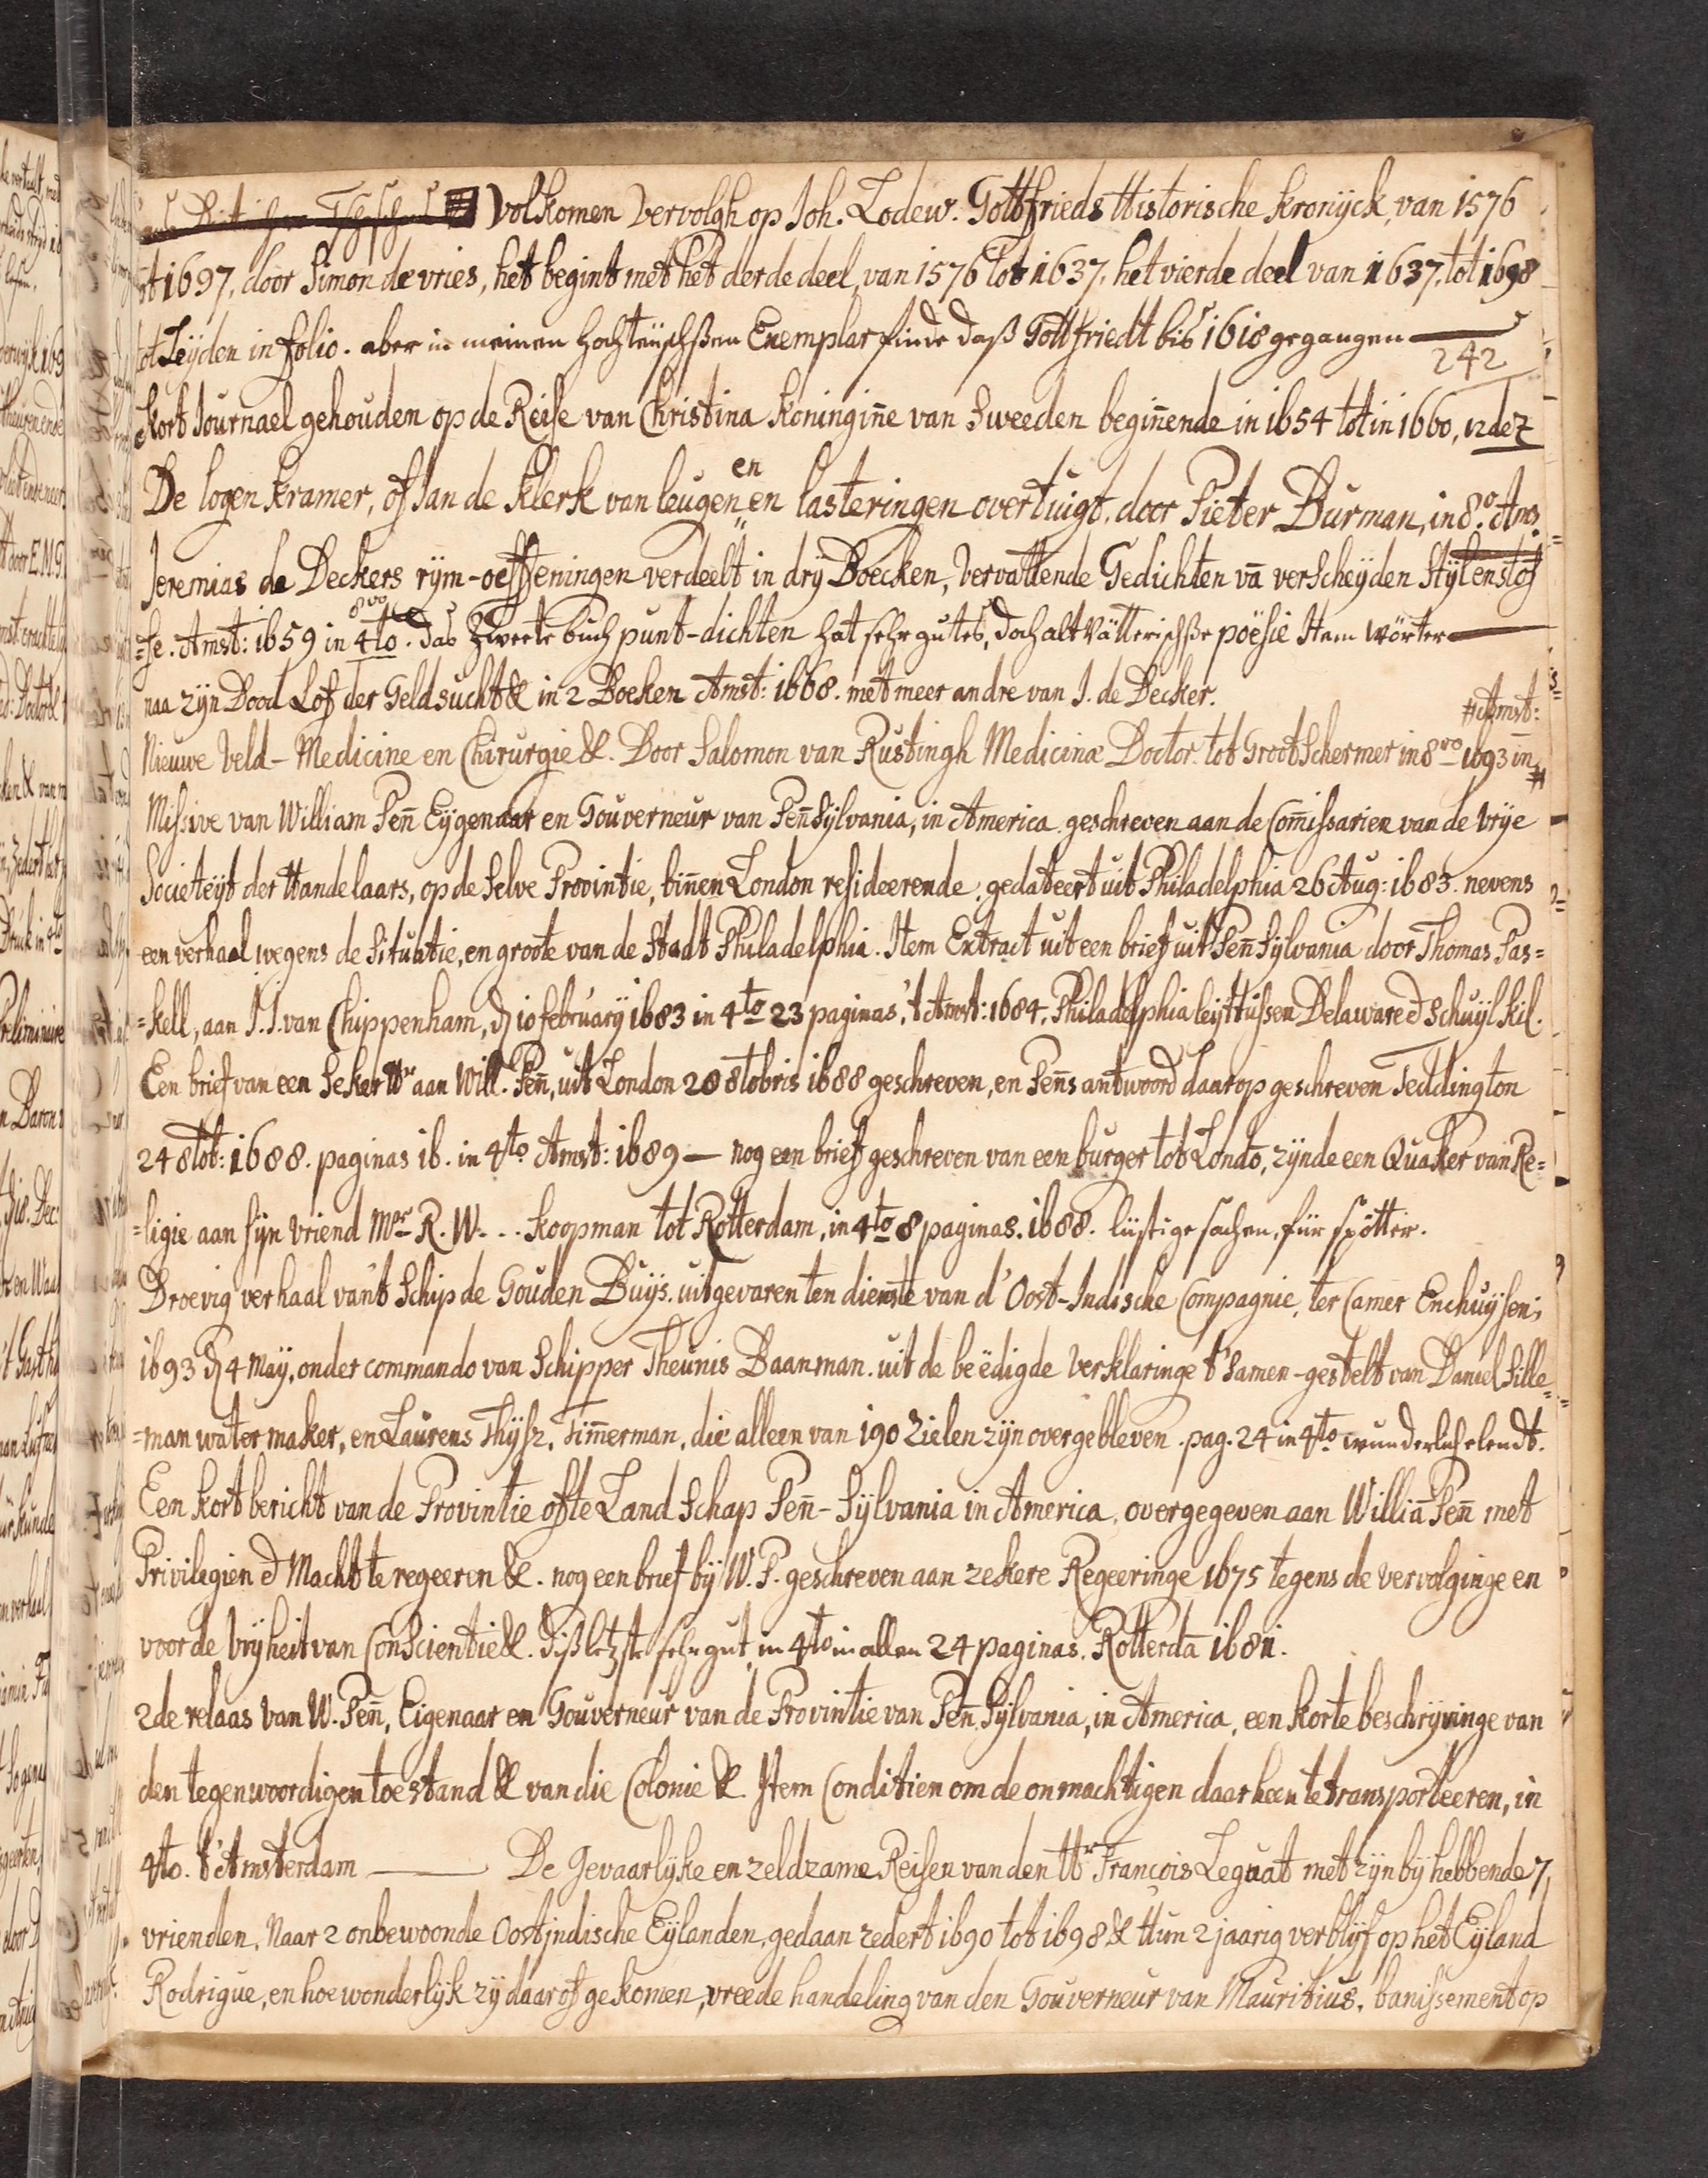 Volkomen Vervolgh op Joh. Lodew. Gottfrieds Historische Kronÿck, van 1576
tot 1697, door Simon de vries, het begint met het derde deel, van 1576 tot 1637, het vierde deel van 1637, tot 1698
tot Leÿden in folio. aber in meinem hochteüschßen Exemplar finde daß Gottfriedt bis 1618 gegangen —
242
Kort Journael gehouden op de Reise van Christina Koningin̄e van Sweeden begin̄ende in 1654 tot in 1660, 12de
De logen Kramer, of Jan de Klerk van leugenen en lasteringen overtuigt, door Pieter Burman, in 8.o Ams
Jeremias de Deckers rÿm-oeffeningen verdeelt in drÿ Boecken, Vervattende Gedichten vā verscheÿden Stÿl en stof
=fe. Amst: 1659 in 4to 8vo. das Zweete buch punt-dichten hat sehr gutes, doch alt Vätterischße poësie Item wörter —
naa zÿn Dood Lof der Geldsucht & in 2 Boeken Amst: 1668. met meer andre van J. de Decker.
Nieuwe Veld-Medicine en Chirurgie &. Door Salomon van Rustingh Medicinæ Doctor tot Groot Schermer in 8vo 1693 in #
# Amst:
Missive van William Pen̄ Eÿgenaar en Gouverneur van Pen̄sÿlvania, in America geschreven aan de Com̄issarien van de Vrÿe
Societeÿt der Handelaars, op de selve Provintie, bin̄en London resideerende, gedateert uit Philadelphia 26 Aug: 1683. nevens
een verhaal wegens de Situatie, en groote van de Stadt Philadelphia. Item Extract uit een brief uit Pen̄sÿlvania door Thomas Pas=
=kell, aan J.J. van Chippenham, 10 februarÿ 1683 in 4to 23 paginas, 't Amst: 1684, Philadelphia leÿt tussen Delaware Schuÿlkil.
Een brief van een Seker Hr aan Will. Pen̄, uit London 20 8tobris 1688 geschreven, en Pen̄s antwoord daar op geschreven Teddington
24 8tob: 1688. paginas 16. in 4to Amst: 1689 — nog een brief geschreven van een burger tot Londo, zÿnde een Quaker van Re=
=ligie aan sÿn vriend Mr R. W... Koopman tot Rotterdam, in 4to 8 paginas. 1688. lüstige sachen, für spötter.
Droevig verhaal van't Schip de Gouden Buÿs, uitgevaren ten dienste van d'Oost-Indische Compagnie, ter Camer Enchuÿsen;
1693 4 Maÿ, onder commando van Schipper Theunis Baanman. uit de beëdigde Verklaringe t'samen-gestelt van Daniel Sille=
=man watermaker, en Laurens Thÿsz, Tim̄erman, die alleen van 190 Zielen zÿn overgebleven. pag. 24 in 4to wunderlich elendt.
Een kort bericht van de Provintie ofte Land Schap Pen̄-Sÿlvania in America, overgegeven aan Williā Pen̄ met
Privilegien Macht te regeeren &. nog een brief bÿ W. P. geschreven aan zekere Regeeringe 1675 tegens de vervolginge en
voor de Vrÿheit van Conscientie &. diß letzte sehr gut, in 4to in allen 24 paginas. Rotterdā 1681.
2de relaas van W. Pen̄, Eigenaar en Gouverneur van de Provintie van Pen̄sÿlvania, in America, een korte beschrÿvinge van
den tegenwoordigen toestand & van die Colonie &. Item Conditien om de onmachtigen daar heen te transporteeren, in
4to. t'Amsterdam — De Gevaarlÿke en zeldzame Reisen van den Hr François Leguat met zÿn bÿ hebbende 7
vrienden, Naar 2 onbewoonde Oostjndische Eÿlanden, gedaan zedert 1690 tot 1698 & Hun 2 jaarig verblÿf op het Eÿland
Rodrigue, en hoe wonderlÿk zÿ daar of gekomen, wreede handeling van den Gouverneur van Mauritius, banissement op